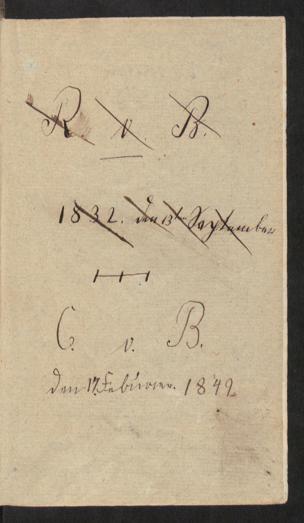 R. v. B.
1832. den 13ten September
C. v. B.
den 17. Februar. 1842